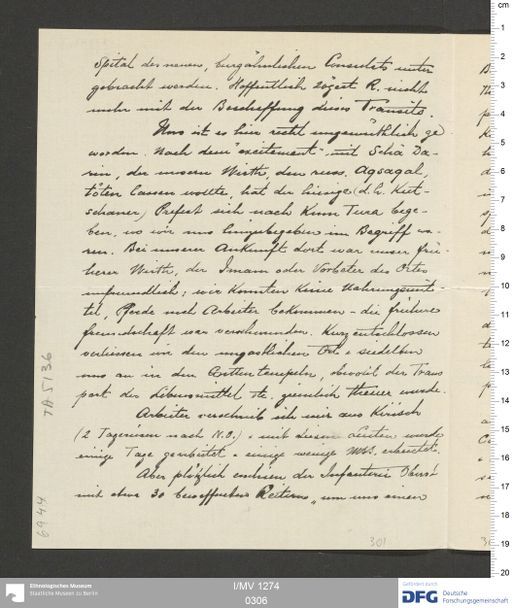 Spital des neuen, burgähnlichen Consulats unter
gebracht werden. Hoffentlich zögert R. nicht
mehr mit der Beschaffung dieses Transits.
Uns ist es hier recht ungemütlich ge
worden. Nach dem "excitement" mit Schia Da-
rin, der unsern Wirth, den russ. Aqsaqal,
töten lassen wollte, hat der hiesige (d.h. Kut-
schaner) Prefect sich nach Kum Tura bege-
ben, wo wir uns hinzubegeben im Begriff wa-
ren. Bei unserer Ankunft dort war unser frü-
herer Wirth, der Imam oder Vorbeter des Ortes
unfreundlich; wir konnten keine Nahrungsmit-
tel, Pferde und Arbeiter bekommen - die frühere
Freundschaft war verschwunden. Kurz entschlossen
verliessen wir den ungastlichen Ort & siedelten
uns an in den Grottentempeln, obwohl der Trans
port der Lebensmittel etc. ziemlich theuer wurde.
Arbeiter verschrieb ich mir aus Kirisch
(2 Tagereisen nach N.O.) & mit diesen Leuten wurde
einige Tage gearbeitet & einige wenige MSS. erbeutet.
Aber plötzlich erschien der Infanterie Oberst
mit etwa 30 bewaffneten Reitern, "um uns einen
TA 5136
6944
301
I/MV 1274
0306
Ethnologisches Museum
Staatliche Museen zu Berlin
Gefördert durch
DFG Deutsche
Forschungsgemeinschaft